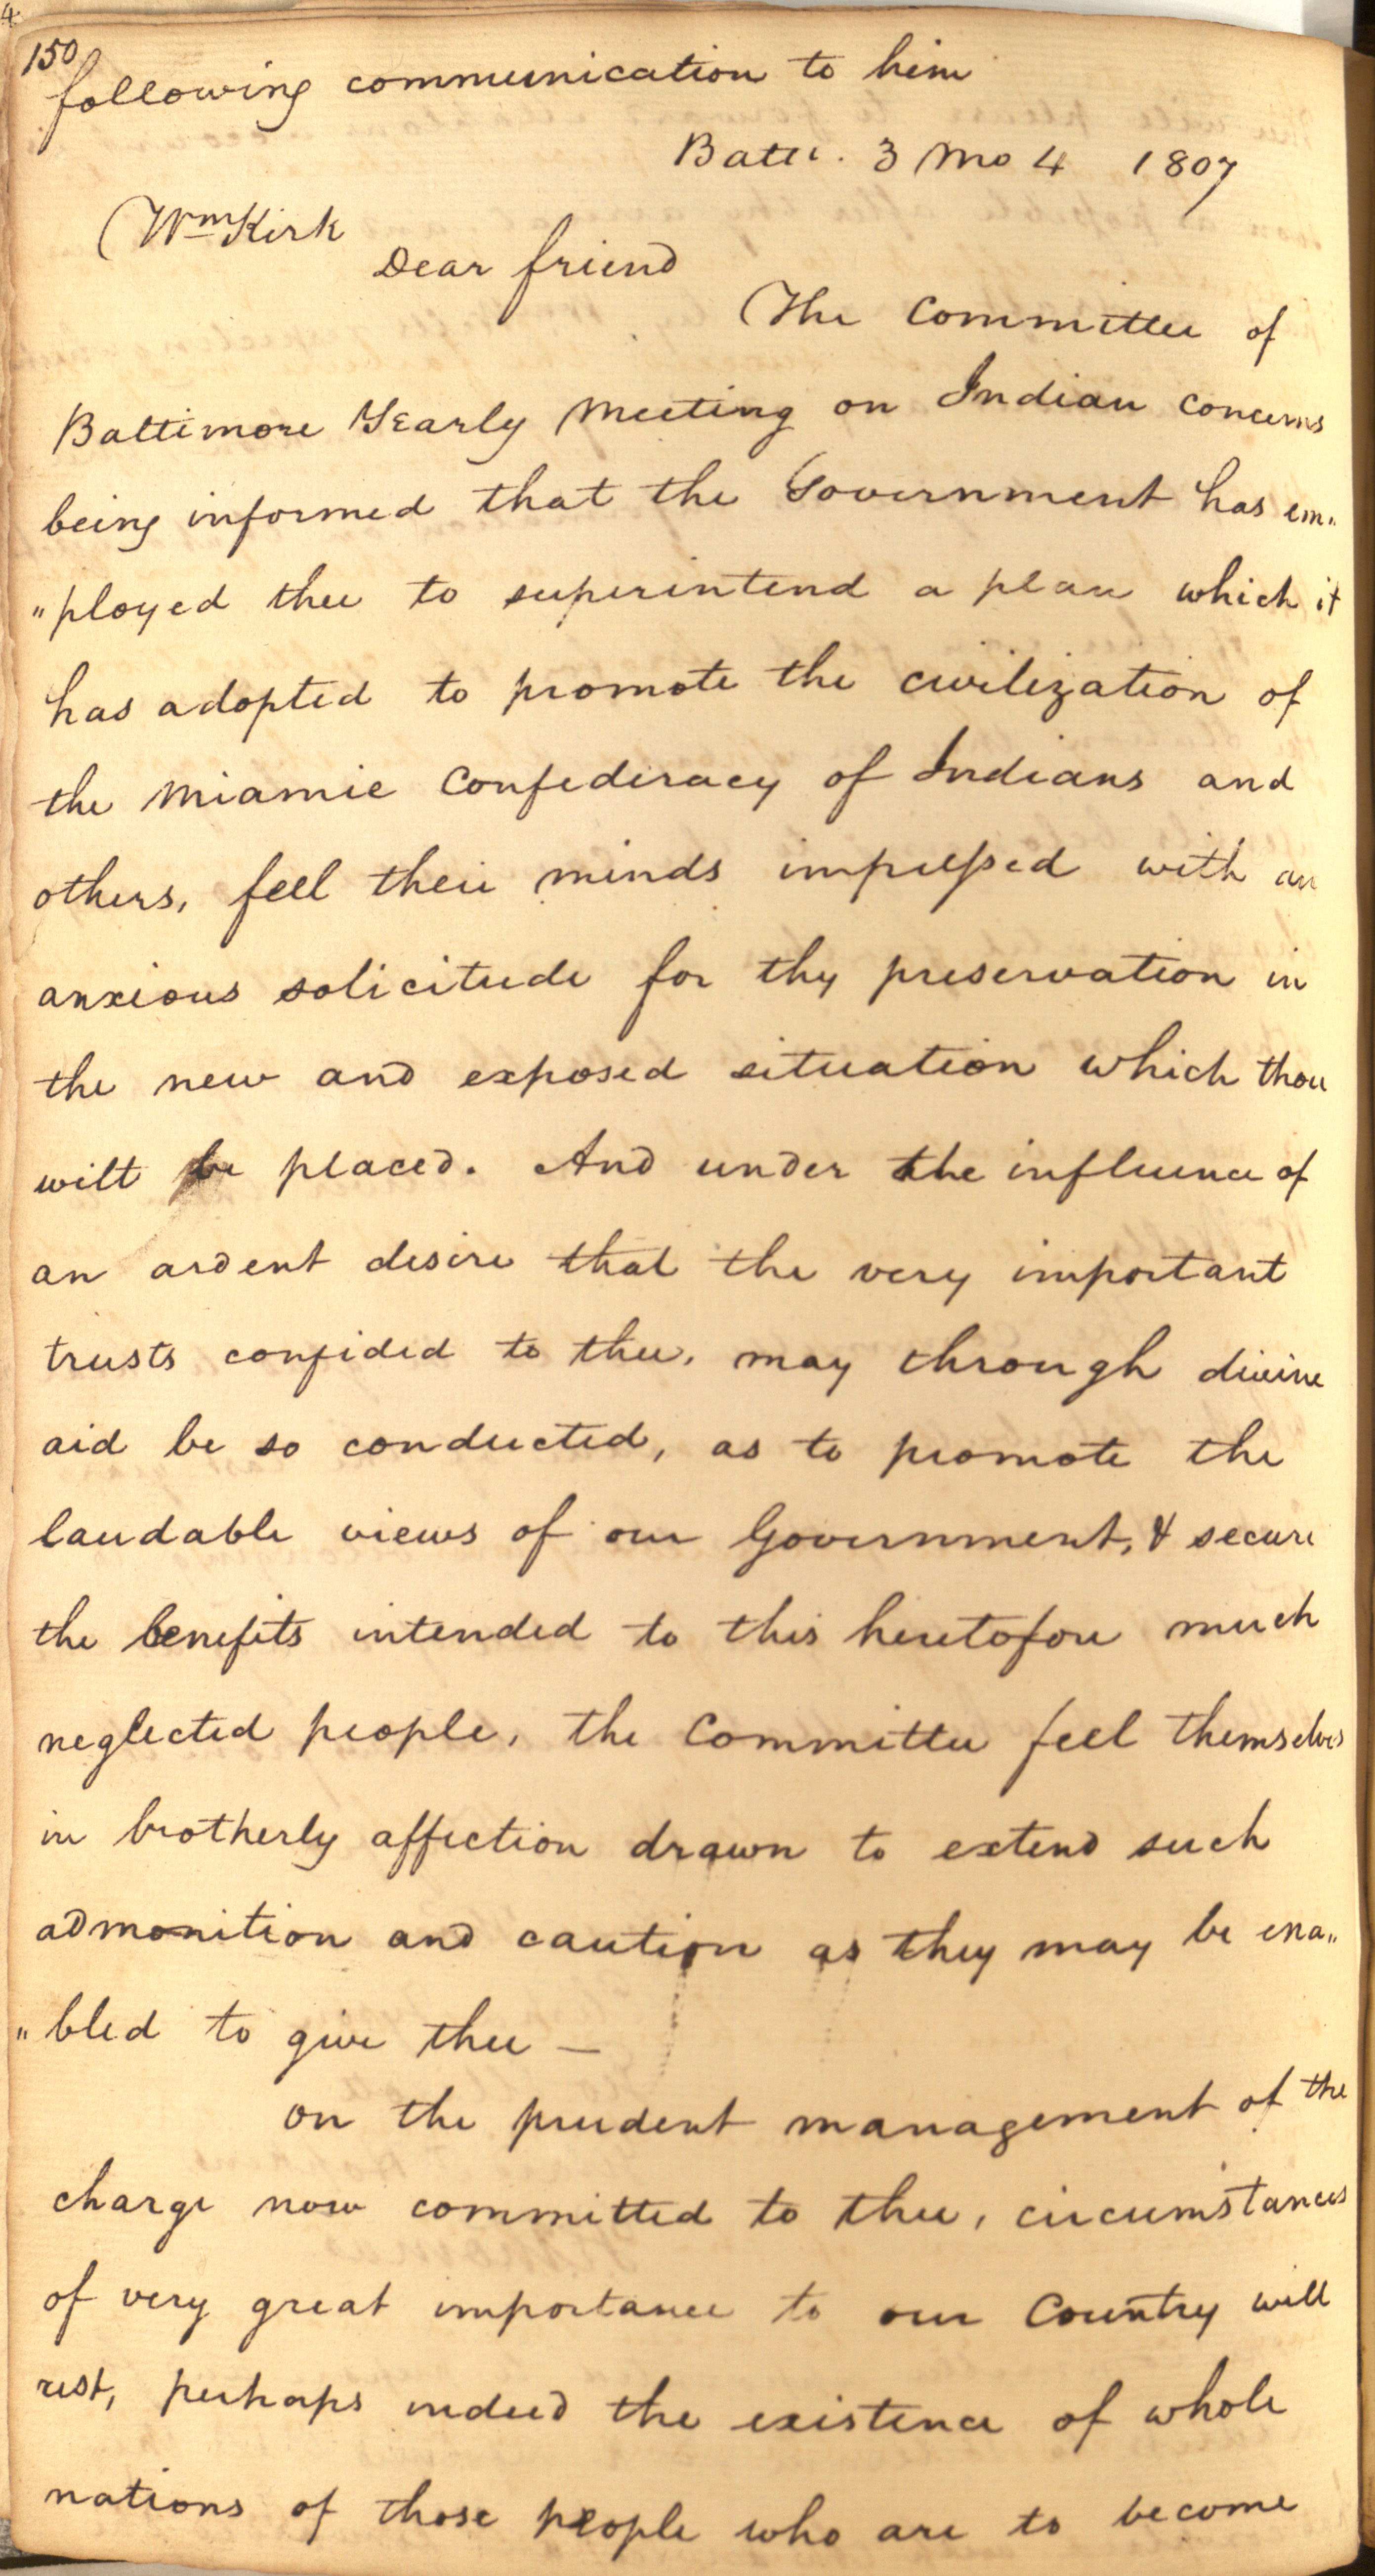 4
150
following communication to him
Balto. 3 Mo 4 1807
Wm Kirk
Dear friend
The Committee of
Baltimore Yearly Meeting on Indian concerns
being informed that the Government has em"
"ployed thee to superintend a plan which it
has adopted to promote the civilization of
the Miamie Confederacy of Indians and
others, feel their minds impressed with an
anxious solicitude for thy preservation in
the new and exposed situation which thou
wilt be placed. And under the influence of
an ardent desire that the very important
trusts confided to thee, may through divine
aid be so conducted, as to promote the
laudable views of our Government, & secure
the benefits intended to this heretofore much
neglected people, the Committee feel themselves
in brotherly affection drawn to extend such
admonition and caution as they may be ena"
"bled to give thee —
on the prudent management of the
charge now committed to thee, circumstances
of very great importance to our Country will
rest, perhaps indeed the existence of whole
nations of those people who are to become